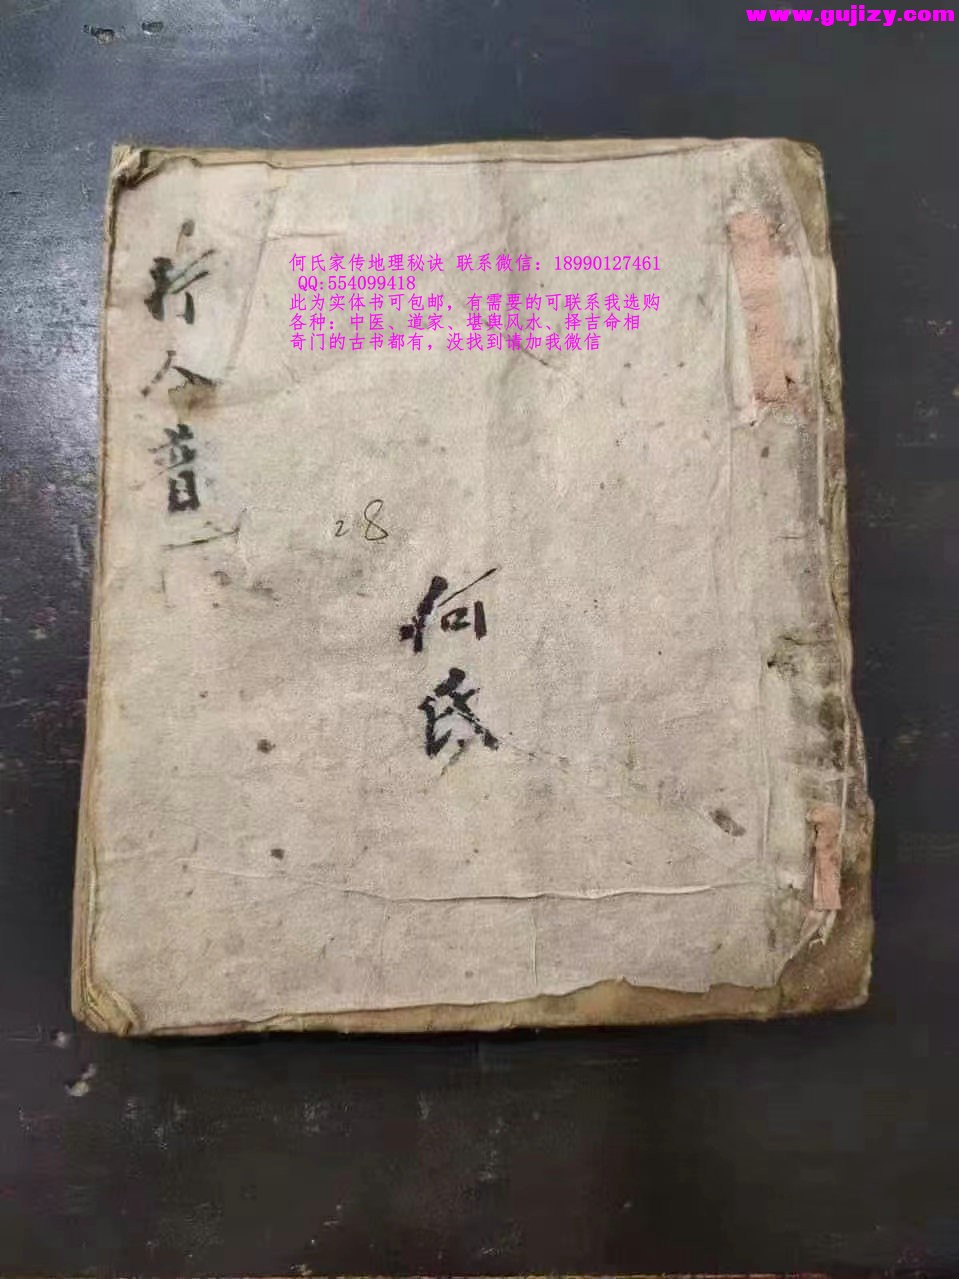 www.gujizy.com
何氏家传地理秘诀 联系微信：18990127461
QQ:554099418
此为实体书可包邮，有需要的可联系我选购
各种；中医、道家、堪舆风水、择吉命相
奇门的古书都有，没找到请加我微信
28
何氏